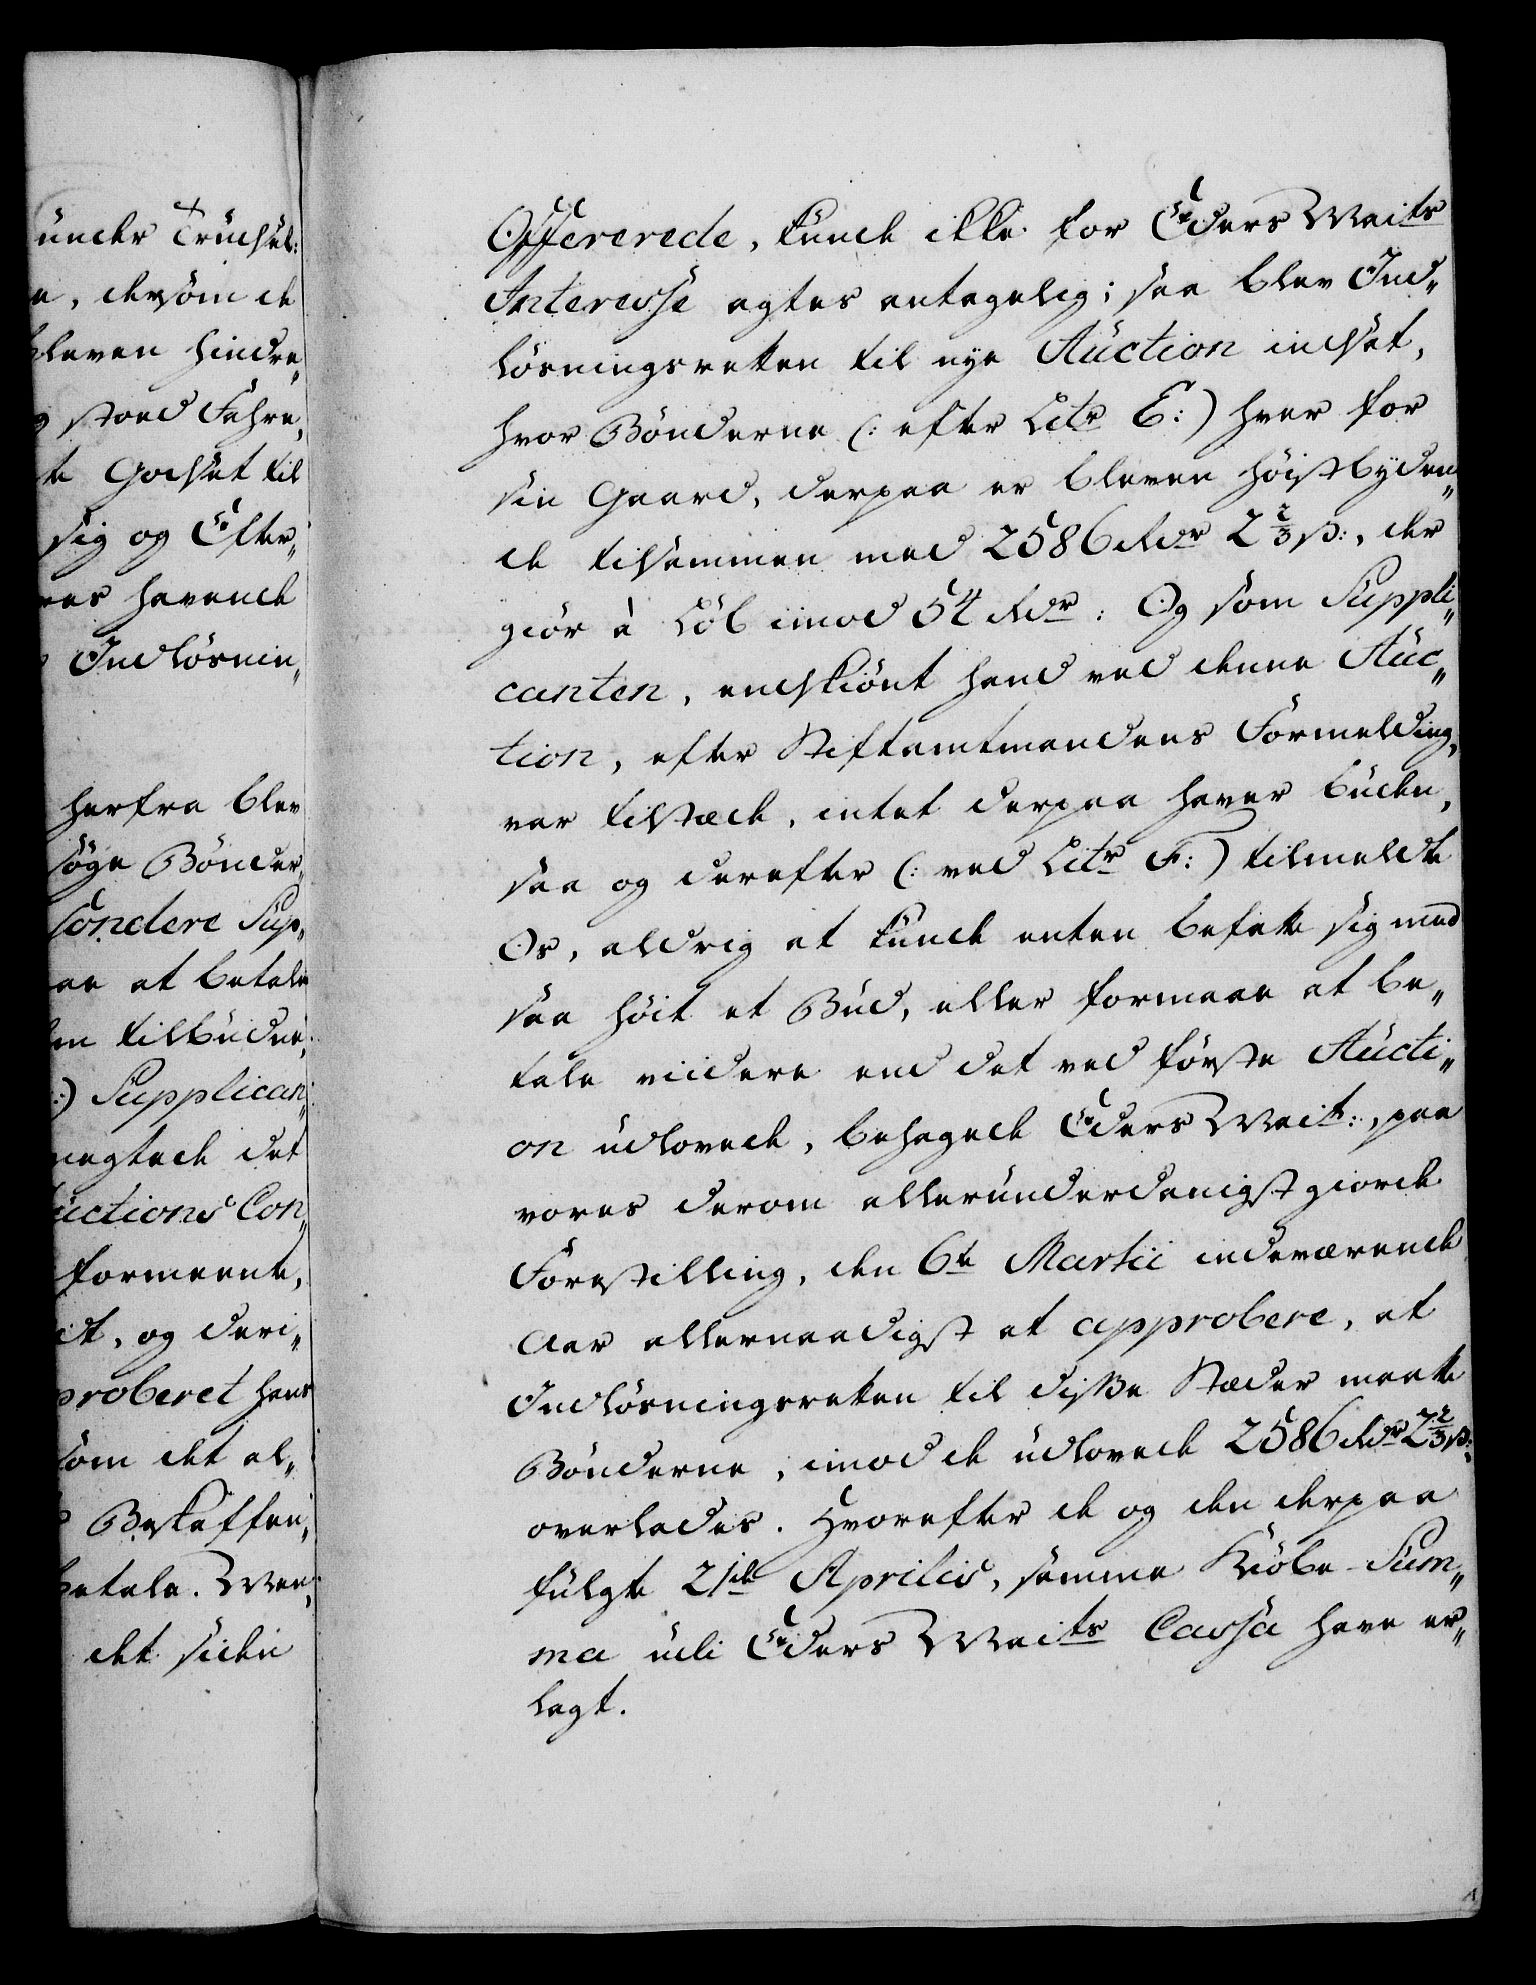 under Trudsel:
e, dersom de
bleven hindre„
g stoed Fahre,
te Godset til
sig og Efter„
res havende
Indlösnin„
herfra blev
söge Bönder„
sondere Sup„
ae at betale
em tilbuden,
:) Supplican„
negtede det
uctions Con„
formeente,
idt, og deri„
proberet hans
som det al„
Beskaffen„
betale. Men
det siden
Offererede, kunde ikke for Eders Maits
Interesse agtes antagelig; saa blev Ind„
lösningsretten til nye Auction indsat,
hvor Bönderne (: efter Litr E:) hver for
sin Gaard, derpaa er bleven höistbyden„
de tilsammen med 2586 Rdr 2 2/3 ß:, der
giör à Löb imod 54 Rdr: Og som Suppli„
canten, endskiönt hand ved denne Auc„
tion, efter Stiftamtmandens Formelding,
var tilstæde, intet derpaa haver buden,
saa og derefter (: ved Litr F:) tilmeldte
Os, aldrig at kunde enten befatte sig med
saa höit et Bud, eller formaae at be„
tale viidere end det ved förste Aucti„
on udlovede, behagede Eders Mait:, paa
vores derom allerunderdanigst giorde
Forestilling, den 6te Martii indeværende
Aar allernaadigst at approbere, at
Indlösningsretten til disse Stæder maatte
Bönderne, imod de udlovede 2586 Rdr 2 2/3 ß:
overlades. Hvorefter de og den derpaa
fulgte 21de Aprilis, samme Kiöbe-Sum„
ma udi Eders Maits Cassa have er„
lagt.